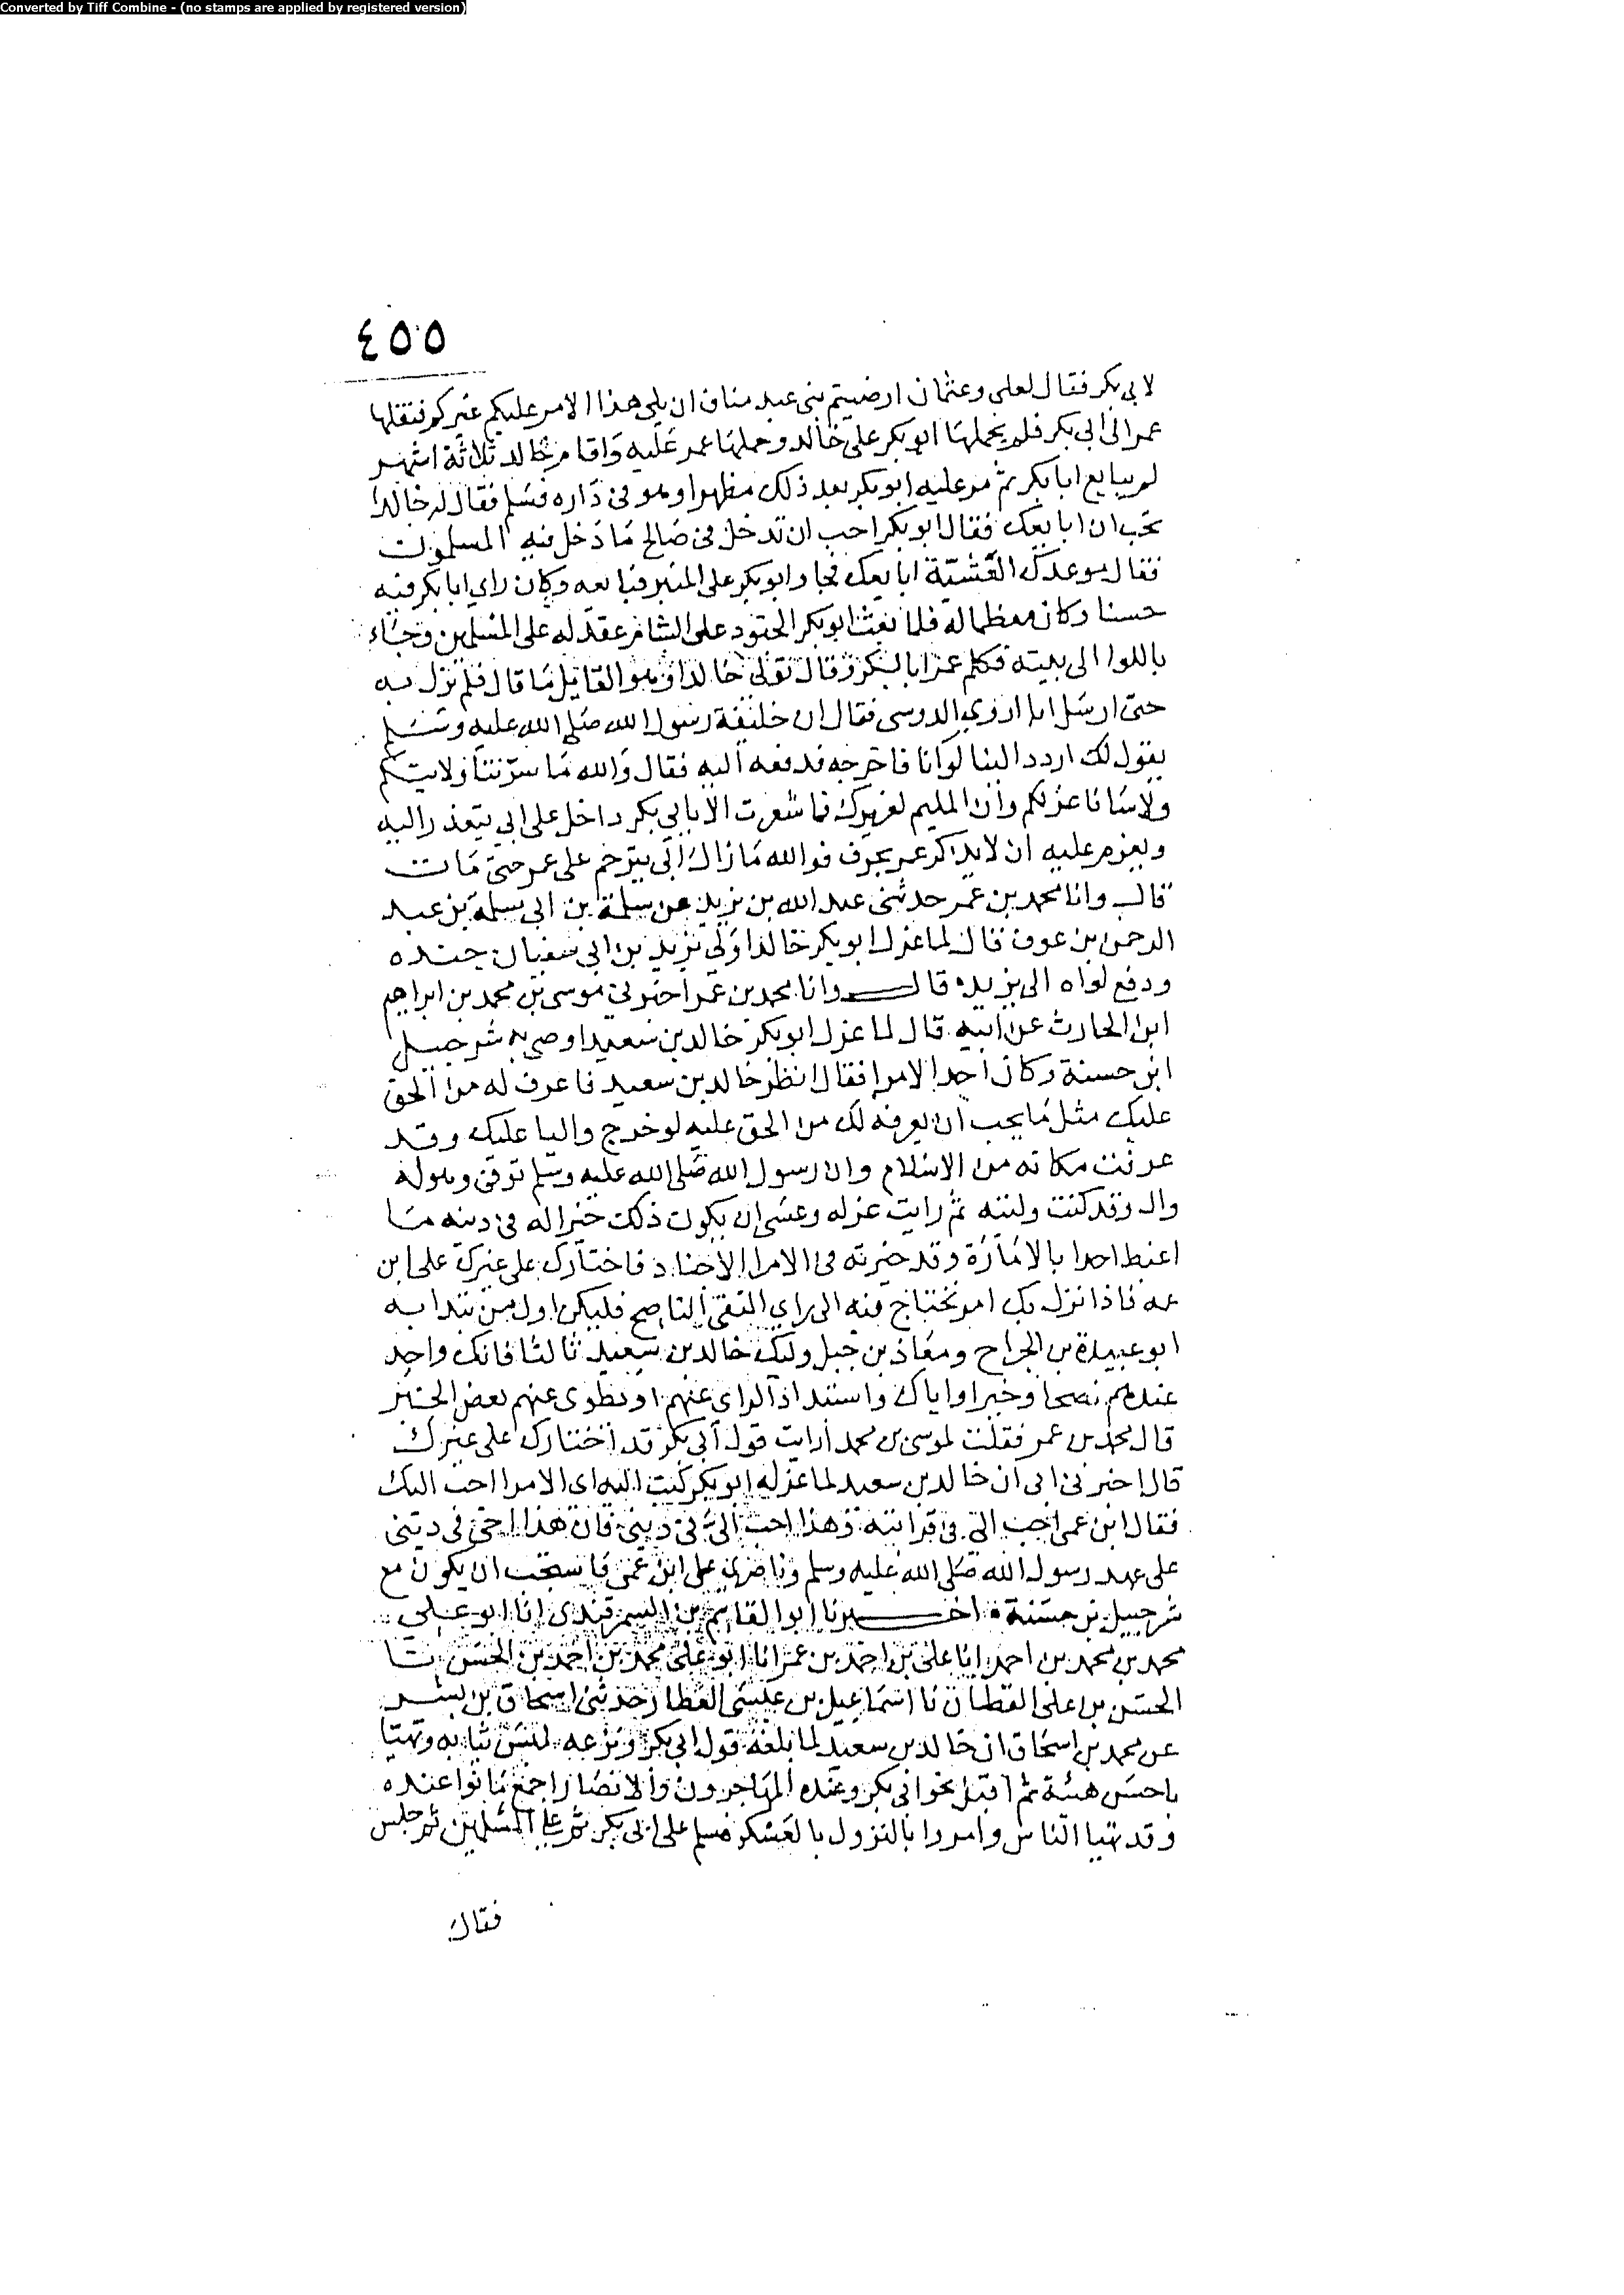 Converted by Tiff Combine - (no stamps are applied by registered version)
٤٥٥
لابي بكر فقال لعلى وعثمان ارضيتم بنى عبد مناف ان يلى هذا الامر عليكم غيركم فنقلها
عمر الى ابي بكر فلم يحملها ابو بكر على خالد وحملها عمر عليه واقام خالد ثلاثة اشهر
لم يبايع ابا بكر ثم مر عليه ابو بكر بعد ذلك مظهرا وهو فى داره فسلم فقال له خالد
تحب ان ابايعك فقال ابو بكر احب ان تدخل فى صالح ما دخل فيه المسلمون
فقال موعدك العشية ابايعك فجاء وابو بكر على المنبر فبايعه وكان راي ابا بكر فيه
حسنا وكان معظما له فلما بعث ابو بكر الجنود على الشام عقد له على المسلمين وجاء
باللوا الى بيته فكلم عمر ابا بكر وقال تولى خالدا وهو القايل ما قال فلم نزل به
حتى ارسل ابا اروى الدوسى فقال ان خليفة رسول الله صلى الله عليه وسلم
يقول لك اردد الينا لوانا فاخرجه فدفعه اليه فقال والله ما سرتنا ولايتكم
ولا سانا عزلكم وان المليم لغيرك فما شعرت الا بابي بكر داخل على ابي يتعذر اليه
ويعزم عليه ان لا يذكر عمر بحرف فوالله ما زال ابي يترحم على عمر حتى مات
قال وانا محمد بن عمر حدثنى عبد الله بن يزيد عن سلمة بن ابى سلمة بن عبد
الرحمن بن عوف قال لما عزل ابو بكر خالدا ولى يزيد بن ابى سفيان جنده
ودفع لواه الى يزيد قال وانا محمد بن عمر اخبرني موسى بن محمد بن ابراهيم
ابن الحارث عن ابيه قال لما عزل ابو بكر خالد بن سعيد اوصى به شرحبيل
ابن حسنة وكان احد الامرا فقال انظر خالد بن سعيد فاعرف له من الحق
عليك مثل ما يحب ان يعرفه لك من الحق عليه لو خرج واليا عليك وقد
عرفت مكانه من الاسلام وان رسول الله صلى الله عليه وسلم توفى وهو له
وال وقد كنت وليته ثم رايت عزله وعسى ان يكون ذلك خيرا له فى دينه ما
اغبط احدا بالامارة وقد خيرته فى الامرا الاجناد فاختارك على غيرك على ابن
عمه فاذا نزل بك امر تحتاج فيه الى راي التقى الناصح فليكن اول من تبدا به
ابو عبيدة بن الجراح ومعاذ بن جبل وليك خالد بن سعيد ثالثا فانك واجد
عندهم نصحا وخيرا واياك واستبداد الراى عنهم او تطوى عنهم بعض الخبر
قال محمد بن عمر فقلت لموسى بن محمد ارايت قول ابي بكر قد اختارك على غيرك
قال اخبرنى ابى ان خالد بن سعيد لما عزله ابو بكر كتب اليه اى الامرا احب اليك
فقال ابن عمى احب الى فى قرابته وهذا احب الى فى دينى فان هذا اخى فى دينى
على عهد رسول الله صلى الله عليه وسلم وناصرى على ابن عمى فاستحب ان يكون مع
شرحبيل بن حسنة اخبرنا ابو القاسم بن السمرقندى انا ابو على
محمد بن محمد بن احمد انا على بن احمد بن عمر انا ابو على محمد بن احمد بن الحسن نا
الحسن بن على القطان نا اسماعيل بن عيسى العطار حدثنى اسحاق بن بشر
عن محمد بن اسحاق ان خالد بن سعيد لما بلغه قول ابى بكر ونزعه لبس ثيابه وتهيا
باحسن هيئة ثم اقبل نحو ابى بكر وعنده المهاجرون والانصار اجمع ما نوا عنده
وقد تهيا الناس وامروا بالنزول بالعسكر فسلم على ابى بكر ثم على المسلمين ثم جلس
فقال